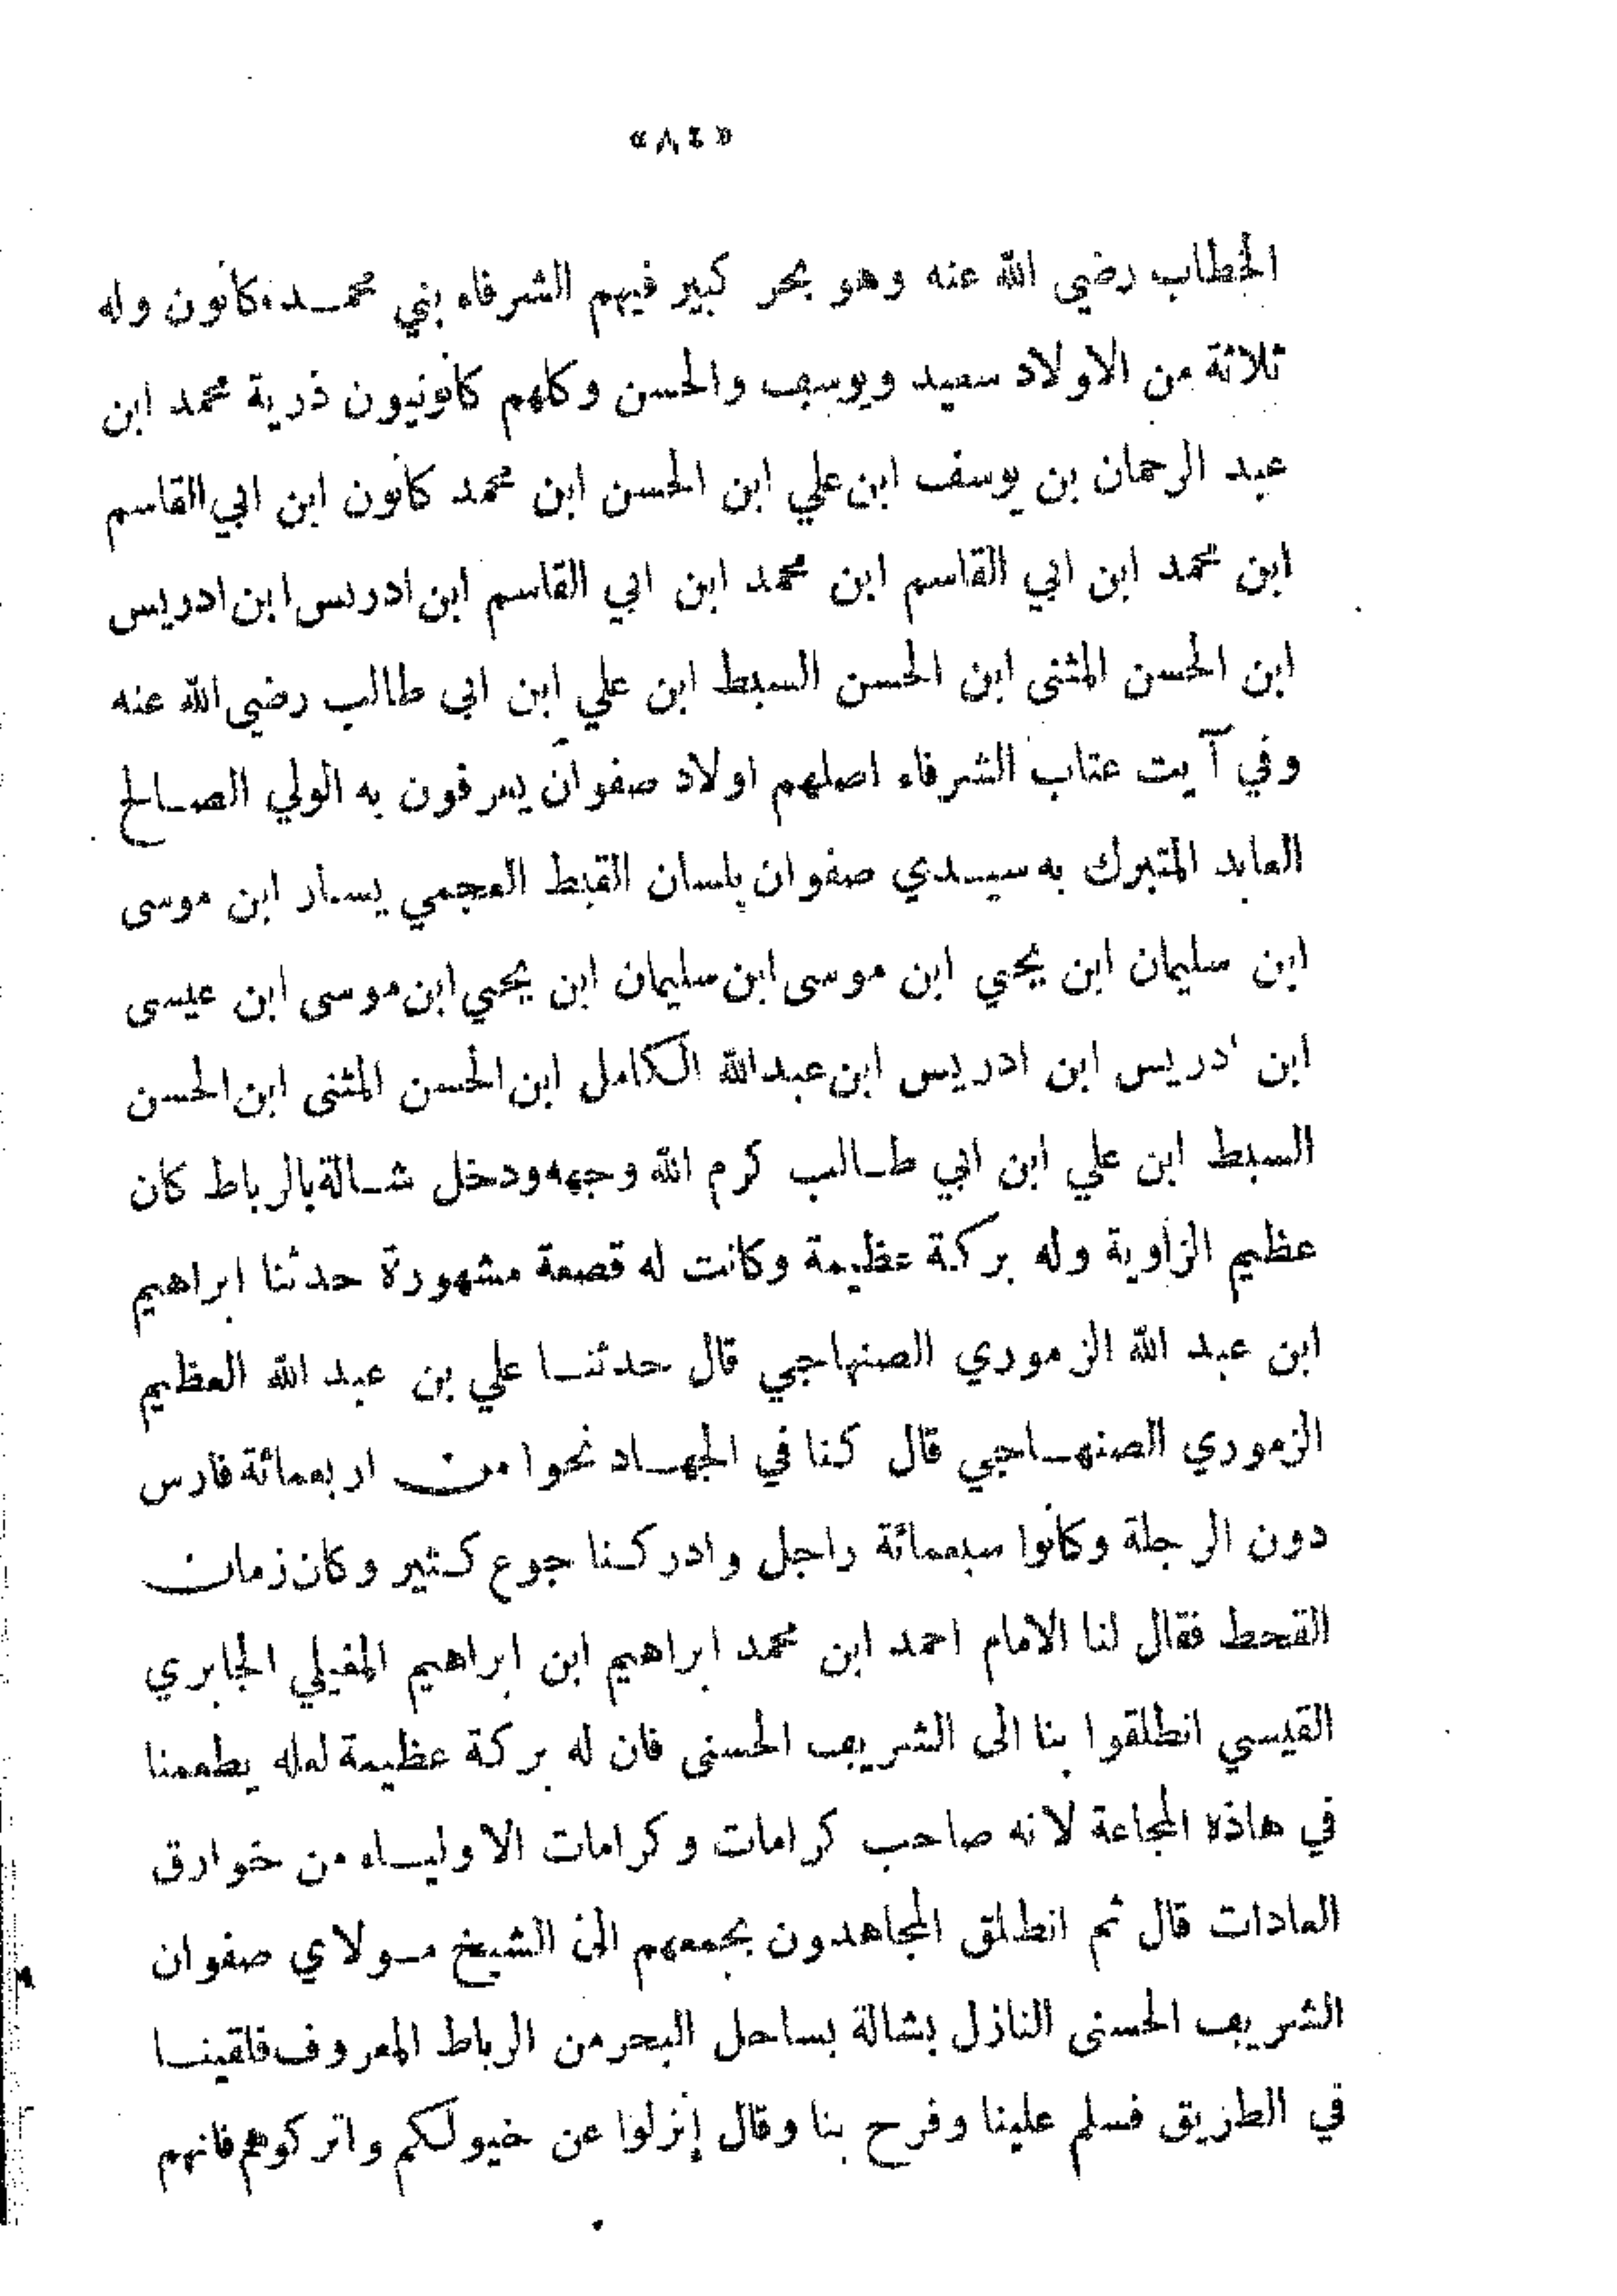 «٨٤»
الخطاب رضي الله عنه وهو بحر كبير فيهم الشرفاء بني محمد كانون وله
ثلاثة من الاولاد سعيد ويوسف والحسن وكلهم كانونيون ذرية محمد ابن
عبد الرحمان بن يوسف ابن علي ابن الحسن ابن محمد كانون ابن ابي القاسم
ابن محمد ابن ابي القاسم ابن محمد ابن ابي القاسم ابن ادريس ابن ادريس
ابن الحسن المثنى ابن الحسن السبط ابن علي ابن ابي طالب رضي الله عنه
وفي آيت عتاب الشرفاء اصلهم اولاد صفوان يعرفون به الولي الصالح
العابد المتبرك به سيدي صفوان بلسان القبط العجمي يسار ابن موسى
ابن سليمان ابن يحي ابن موسى ابن سليمان ابن يحيي ابن موسى ابن عيسى
ابن ادريس ابن ادريس ابن عبدالله الكامل ابن الحسن المثنى ابن الحسن
السبط ابن علي ابن ابي طالب كرم الله وجهه ودخل شالة بالرباط كان
عظيم الزاوية وله بركة عظيمة وكانت له قصعة مشهورة حدثنا ابراهيم
ابن عبد الله الزموري الصنهاجي قال حدثنا علي بن عبد الله العظيم
الزموري الصنهاجي قال كنا في الجهاد نحوا من اربعمائة فارس
دون الرجلة وكانوا سبعمائة راجل وادركنا جوع كثير وكان زمان
القحط فقال لنا الامام احمد ابن محمد ابراهيم ابن ابراهيم المغيلي الجابري
القيسي انطلقوا بنا الى الشريف الحسنى فان له بركة عظيمة لعله يطعمنا
في هاذه المجاعة لانه صاحب كرامات وكرامات الاولياء من خوارق
العادات قال ثم انطلق المجاهدون بجمعهم الى الشيخ مولاي صفوان
الشريف الحسنى النازل بشالة بساحل البحر من الرباط المعروف فلقينا
في الطريق فسلم علينا وفرح بنا وقال إنزلوا عن خيولكم واتركوهم فانهم